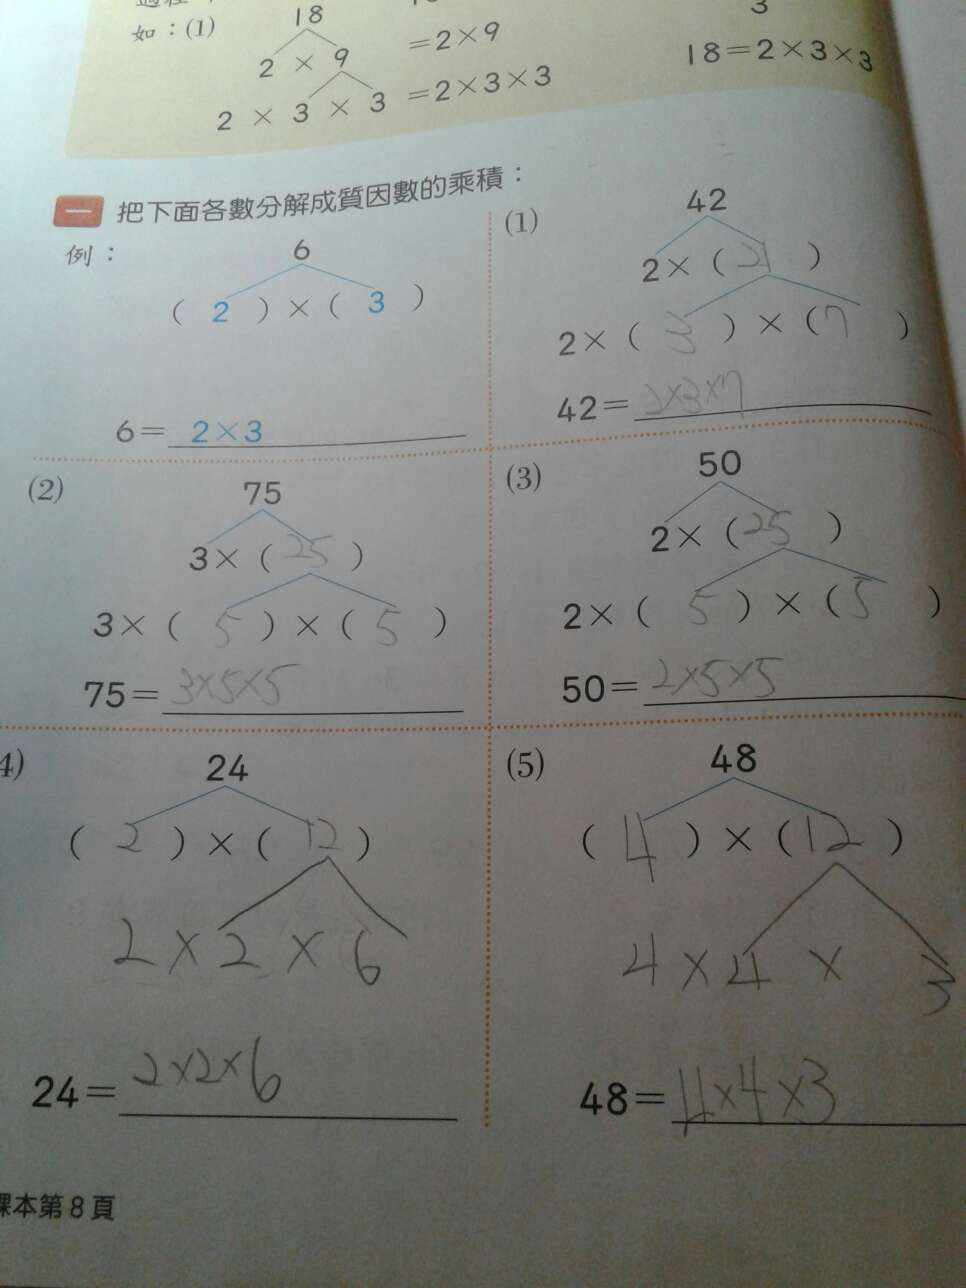 如：(1)
18
2 × 9
=2×9
2 × 3 × 3
=2×3×3
3
18=2×3×3
一 把下面各數分解成質因數的乘積：
例：
6
( 2 ) × ( 3 )
6= 2×3
(1)
42
2 × ( 21 )
2 × ( 3 ) × ( 7 )
42= 2×3×7
(2)
75
3 × ( 25 )
3 × ( 5 ) × ( 5 )
75= 3×5×5
(3)
50
2 × ( 25 )
2 × ( 5 ) × ( 5 )
50= 2×5×5
4)
24
( 2 ) × ( 12 )
2 × 2 × 6
24= 2×2×6
(5)
48
( 4 ) × ( 12 )
4 × 4 × 3
48= 4×4×3
課本第8頁